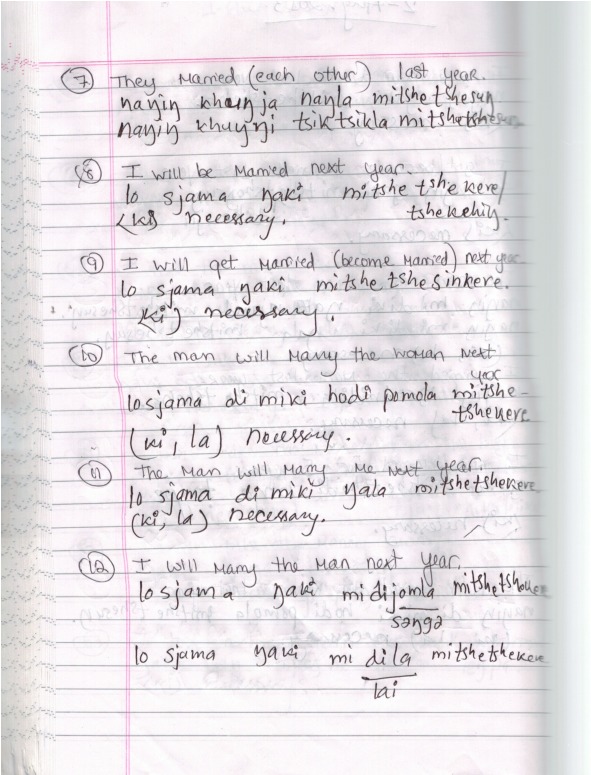 (7) They married (each other) last year.
nayin khunja nanla mitshetshesuŋ
nayiŋ khuyŋi tsiktsikla mitshetshesuŋ
(8) I will be married next year.
lo sjama ŋaki mitshe tshe kere/
(ki) necessary. tshekehiŋ.
(9) I will get married (become married) next year
lo sjama ŋaki mitshe tshe sinkere.
(ki) necessary.
(10) The man will marry the woman next
year
losjama di miki hodi pomola mitshe-
tshekere
(ki, la) necessary.
(11) The man will marry me next year.
lo sjama di miki ŋala mitshetshekere
(ki, la) necessary.
(12) I will marry the man next year.
losjama ŋaki midijomla mitshetshekere
səŋgə
lo sjama ŋaki mi di la mitshetshekere
lai